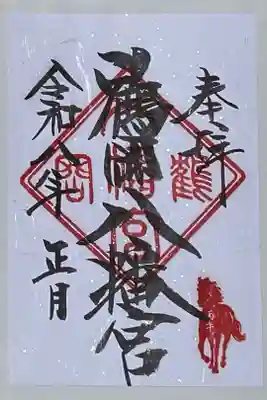 奉拝
鶴岡八幡宮
令和八年 正月
鶴
岡
宮